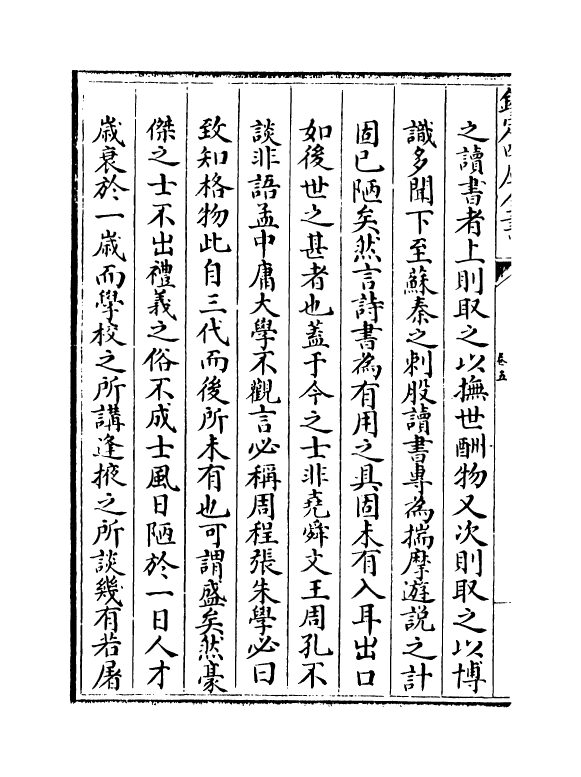 欽定四庫全書
卷五
之讀書者上則取之以撫世酬物又次則取之以博
識多聞下至蘇秦之刺股讀書專為揣摩遊説之計
固已陋矣然言詩書為有用之具固未有入耳出口
如後世之甚者也蓋于今之士非堯舜文王周孔不
談非語孟中庸大學不觀言必稱周程張朱學必曰
致知格物此自三代而後所未有也可謂盛矣然豪
傑之士不出禮義之俗不成士風日陋於一日人才
歲衰於一歲而學校之所講逢掖之所談幾有若屠